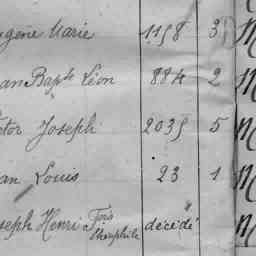 ugène Marie 1158 3
an Bapte Léon 884 2
ctor Joseph 2035 5
an Louis 23 1
seph Henri Fçois Théophile décédé "